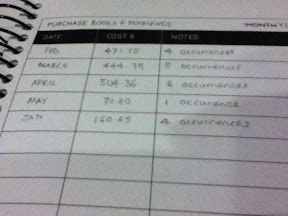 PURCHASE BOOKS + MAGAZINES MONTHLY
DATE COST $ NOTES
FEB 471.75 4 occurrences
MARCH 444.75 5 occurrences
APRIL 504.36 6 occurrences
MAY 1 occurrence
JAN 160.65 4 occurrences